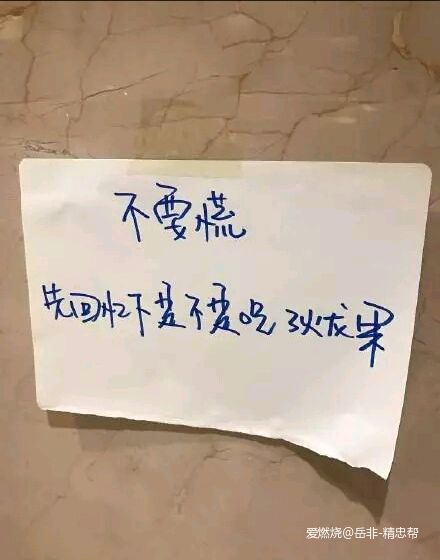 不要慌
先回忆下是不是吃了火龙果
爱燃烧@岳非-精忠帮